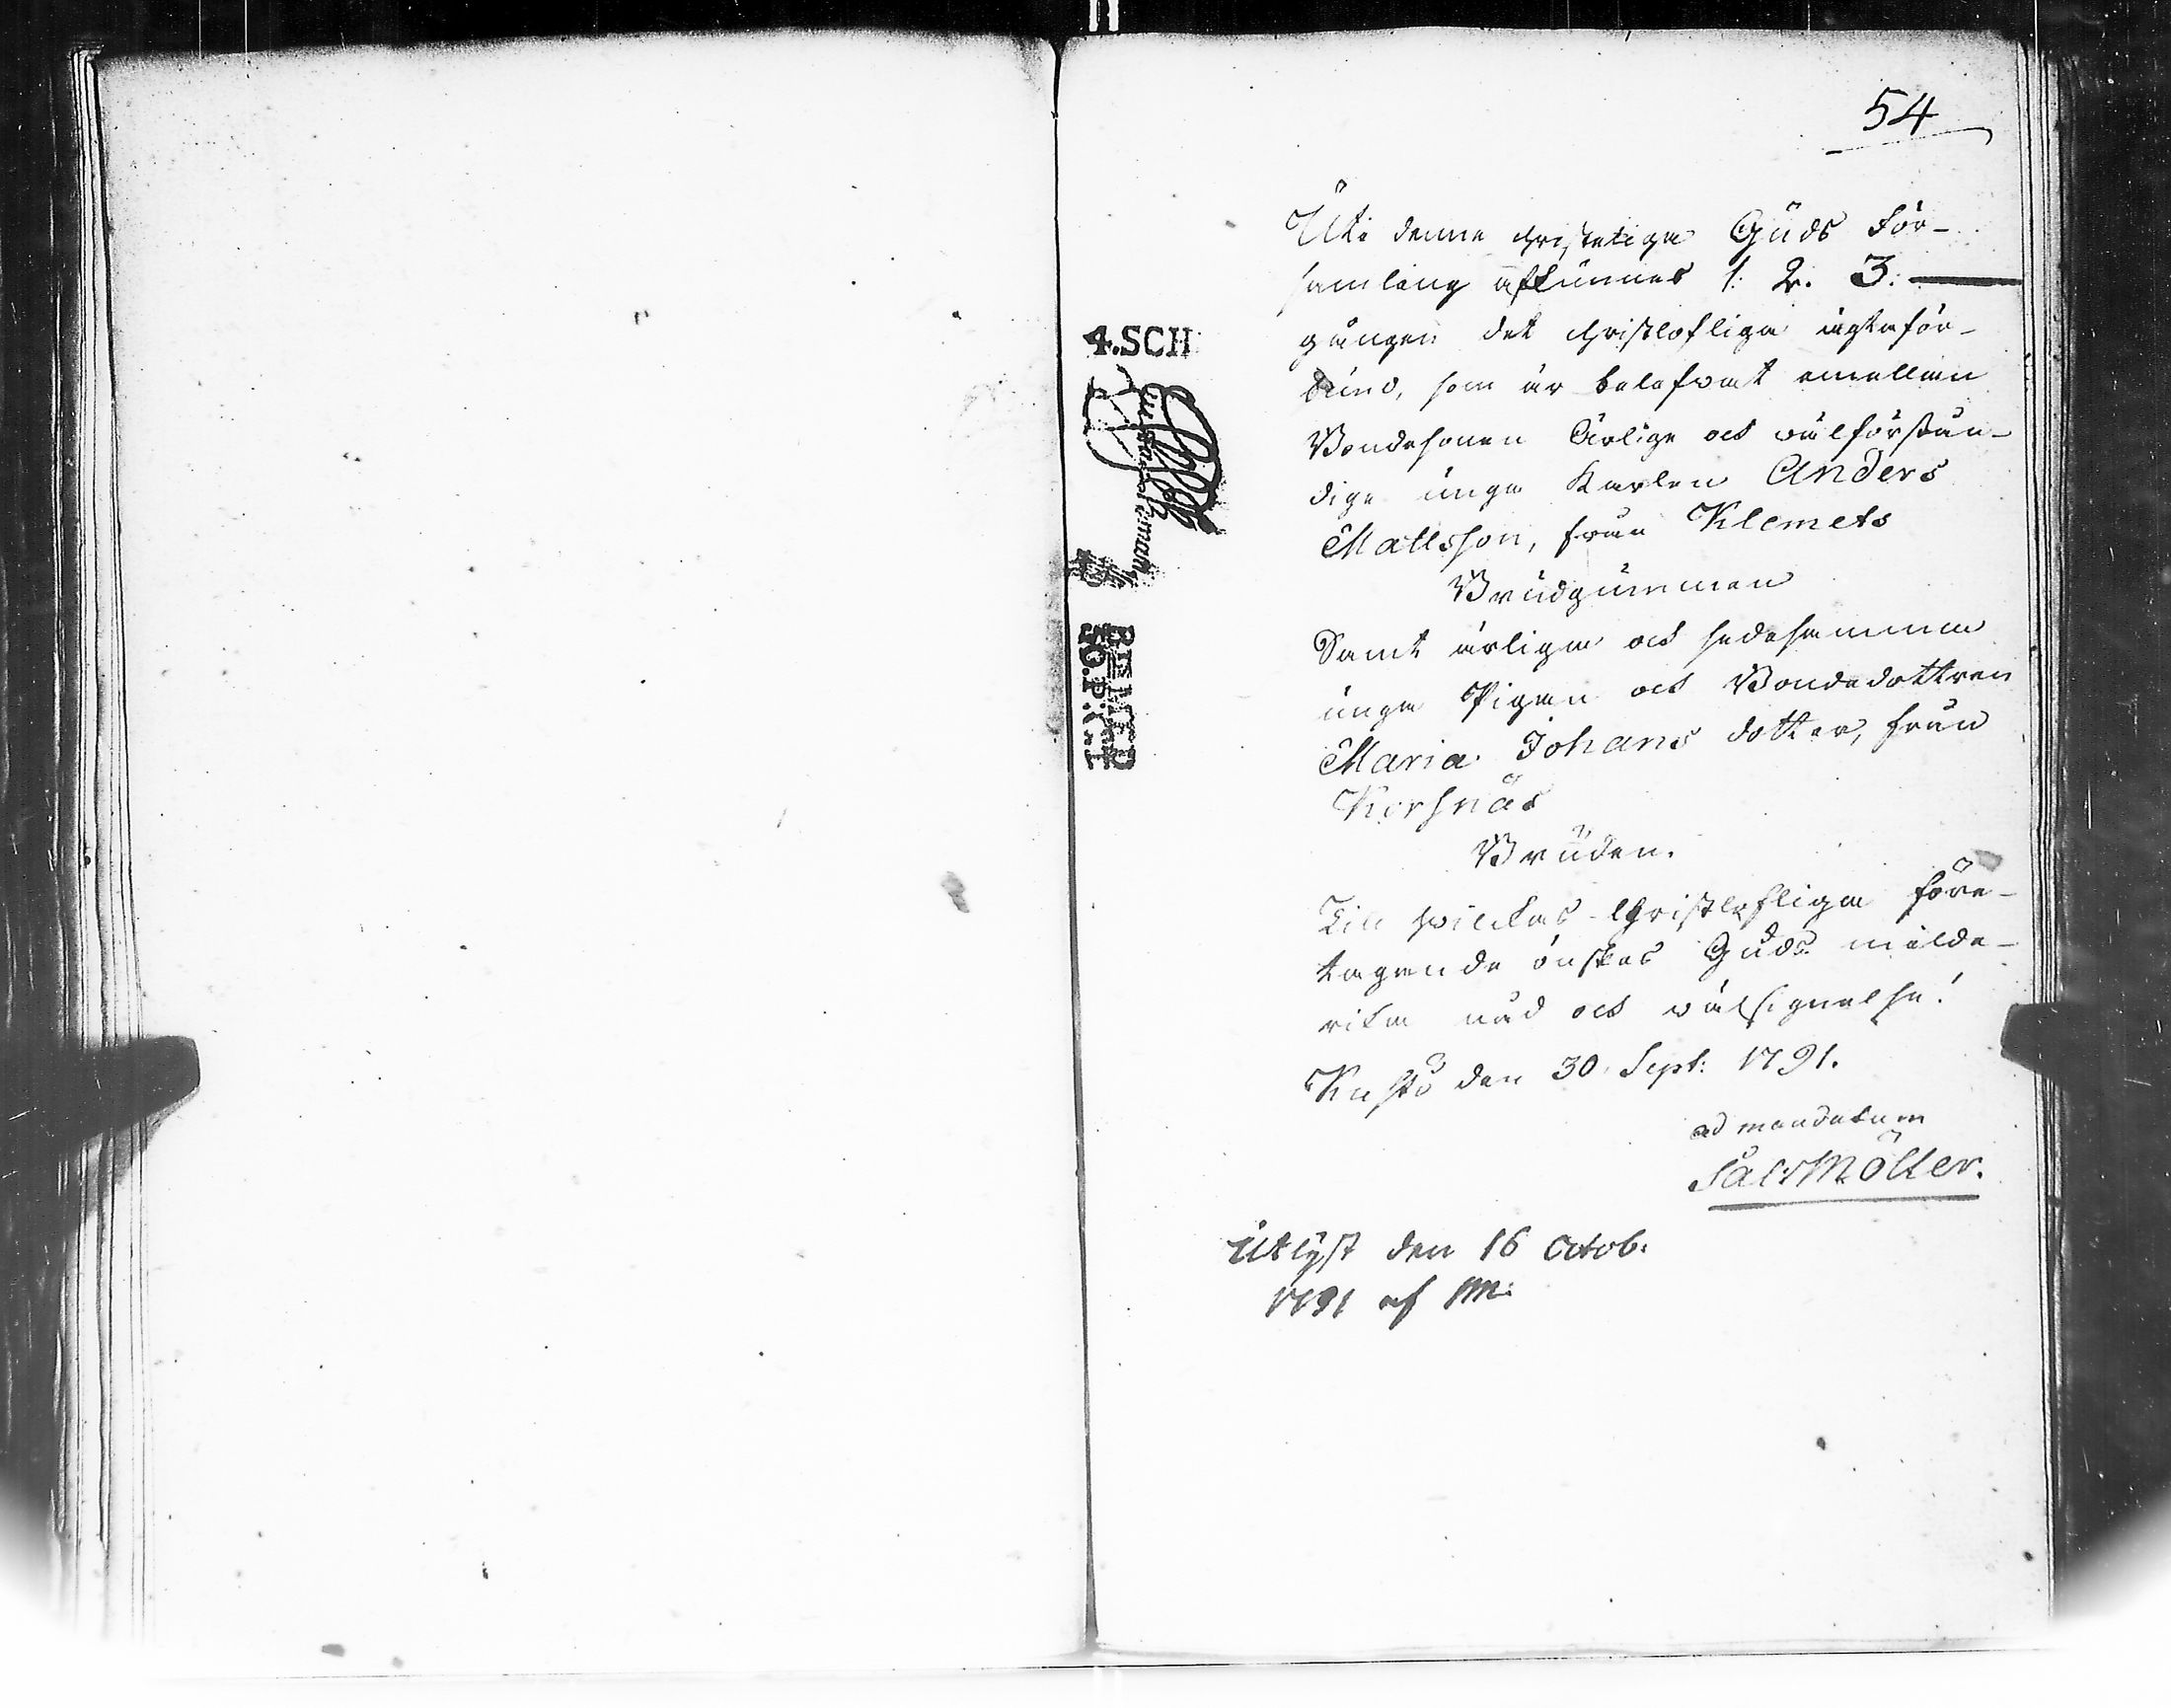 54
Uti denne christeliga Guds För-
samling afkunnas 1. 2. 3.
gången det christlofliga ägtaför-
bund, som är belefwat emellan
Bondesonen Ärlige och wälförstån-
dige unge Karlen Anders
Mattsson, från Klemets
Brudgummen
Samt ärliga och sedesamma
unga Pigan och Bondedottren
Maria Johans dotter, från
Korsnäs
Bruden.
Till hwilkas Christlofliga före-
tagende önskas Guds milde-
rika nåd och wälsignelse!
den 30 Sept: 1791.
ad mandatum
Möller.
Utlyst den 16 Octob:
1791 af
4.SCH
BEVILLD